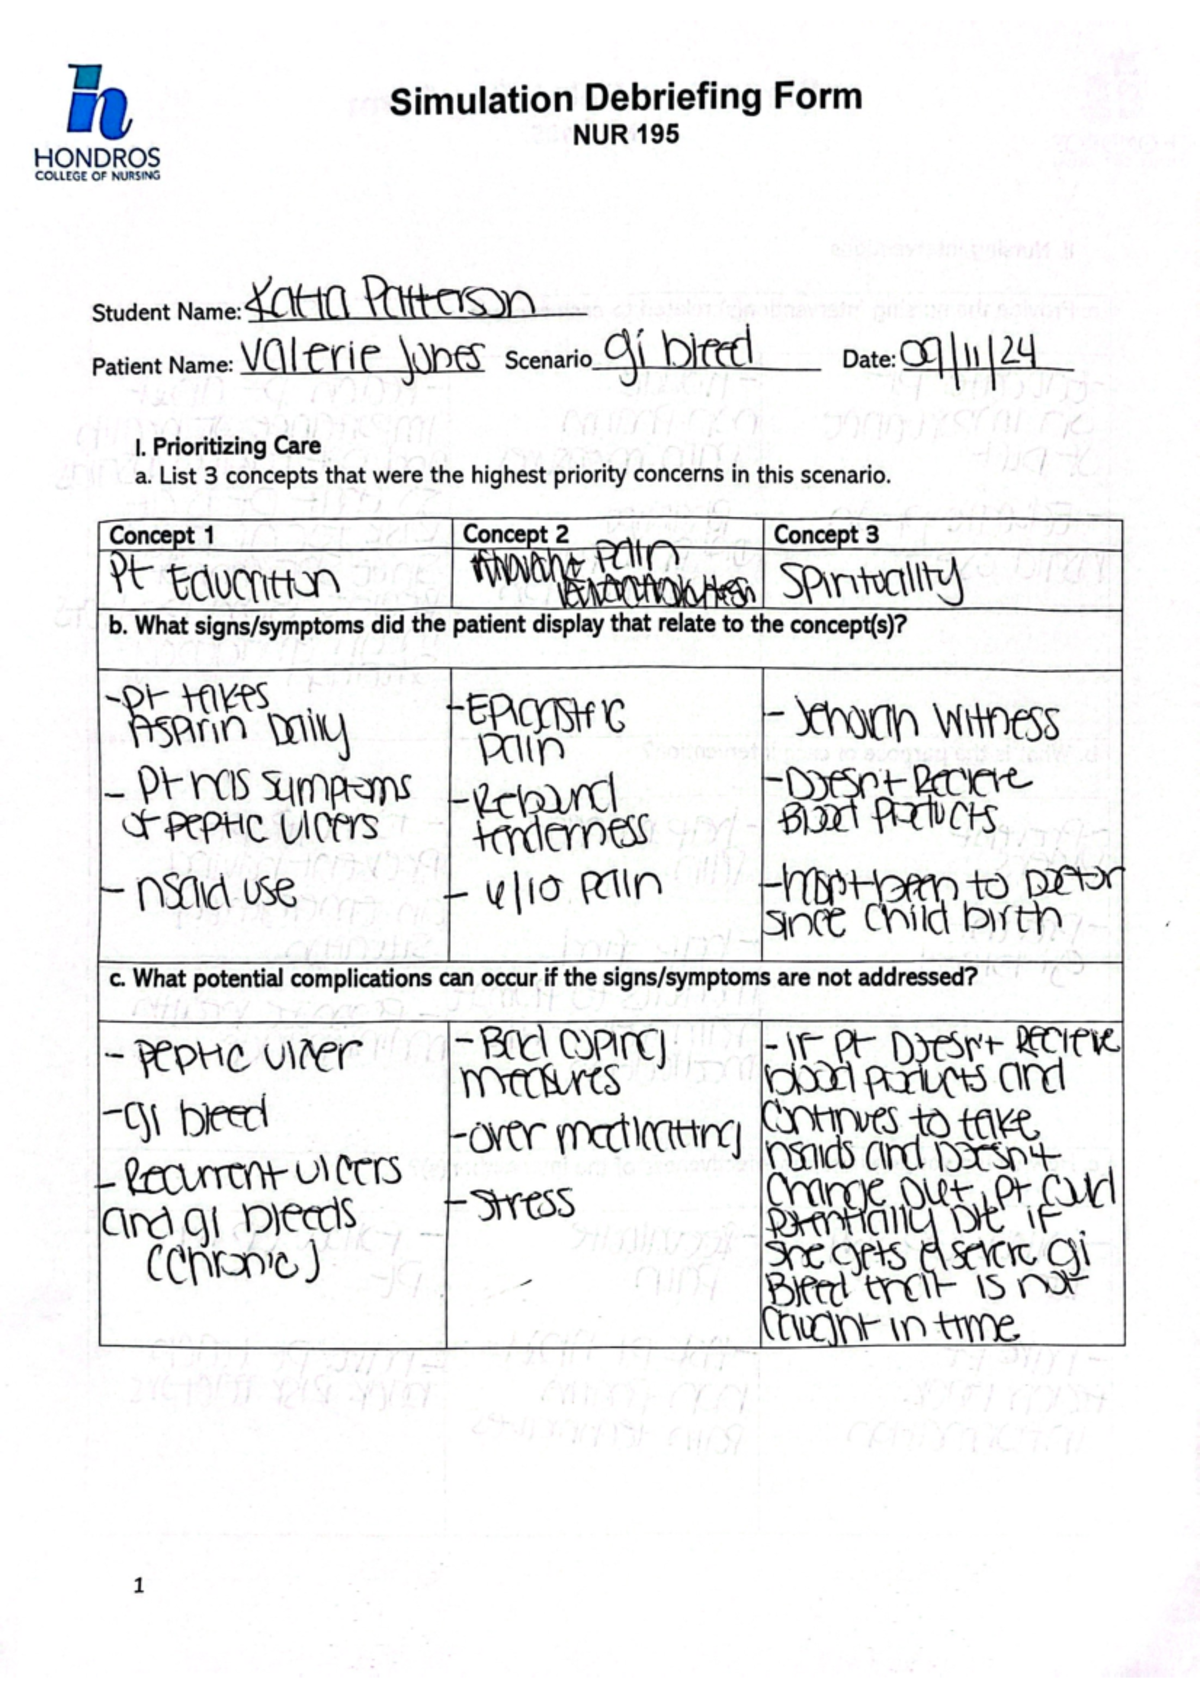 Simulation Debriefing Form
NUR 195
HONDROS
COLLEGE OF NURSING
Student Name: Katia Patterson
Patient Name: Valerie Jones Scenario gi bleed Date: 09/11/24
I. Prioritizing Care
a. List 3 concepts that were the highest priority concerns in this scenario.
Concept 1
Concept 2
Concept 3
Pt Education
pain
Spirituality
b. What signs/symptoms did the patient display that relate to the concept(s)?
-pt takes
Aspirin Daily
- Pt has symptoms
of peptic ulcers
- nsaid use
-Epigastric
pain
-Rebound
tenderness
- /10 pain
- Jehovah Witness
-Doesn't Recieve
Blood Products
-Hasn't been to Doctor
since child birth
c. What potential complications can occur if the signs/symptoms are not addressed?
- peptic ulcer
-gi bleed
- Recurrent ulcers
and gi bleeds
(Chronic)
- Bad coping
measures
-over medicatting
-stress
- If pt Doesn't Recieve
blood products and
Continues to take
nsaids and Doesn't
Change Diet, pt Could
potentially Die if
she gets a severe gi
Bleed that is not
Caught in time
1